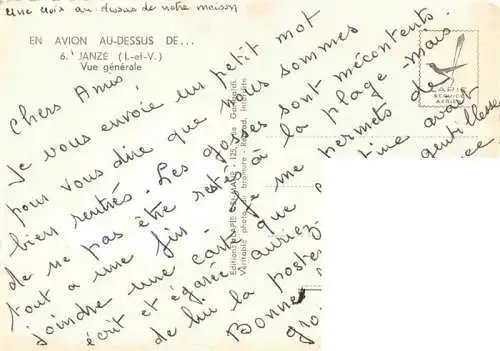 Une croix au-dessus de notre maison
EN AVION AU-DESSUS DE...
6. JANZE (I.-et-V.)
Vue générale
Chers Amis
Je vous envoie un petit mot
pour vous dire que nous sommes
bien rentrés. Les gosses sont mécontents
de ne pas être restés à la plage mais
tout a une fin. Je me permets de
joindre une carte que
avait
écrit et égarée auriez
gentillesse
de lui la poster
Bonne
Editions LAPIE
Véritable photo au bromure - Reprod. interdite
LAPIE